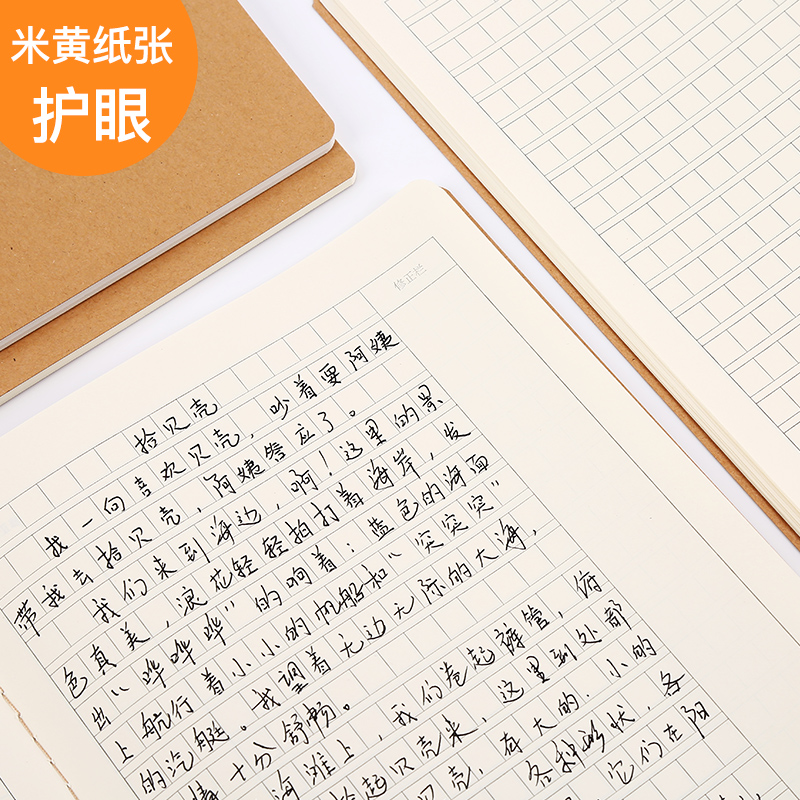 米黄纸张
护眼
修正栏
拾贝壳
我一向喜欢贝壳，吵着要阿姨
带我去拾贝壳，阿姨答应了。
我们来到海边，啊！这里的景
色真美，浪花轻轻拍打着海岸，发
出“哗哗哗”的响着；蓝色的海面
上航行着小小的帆船和“突突突”
的汽艇。我望着无边无际的大海，
情十分舒畅。
海滩上，我们卷起裤管，俯
拾起贝壳来，这里到处都
贝壳，有大的.小的
各种形状，各
它们在阳